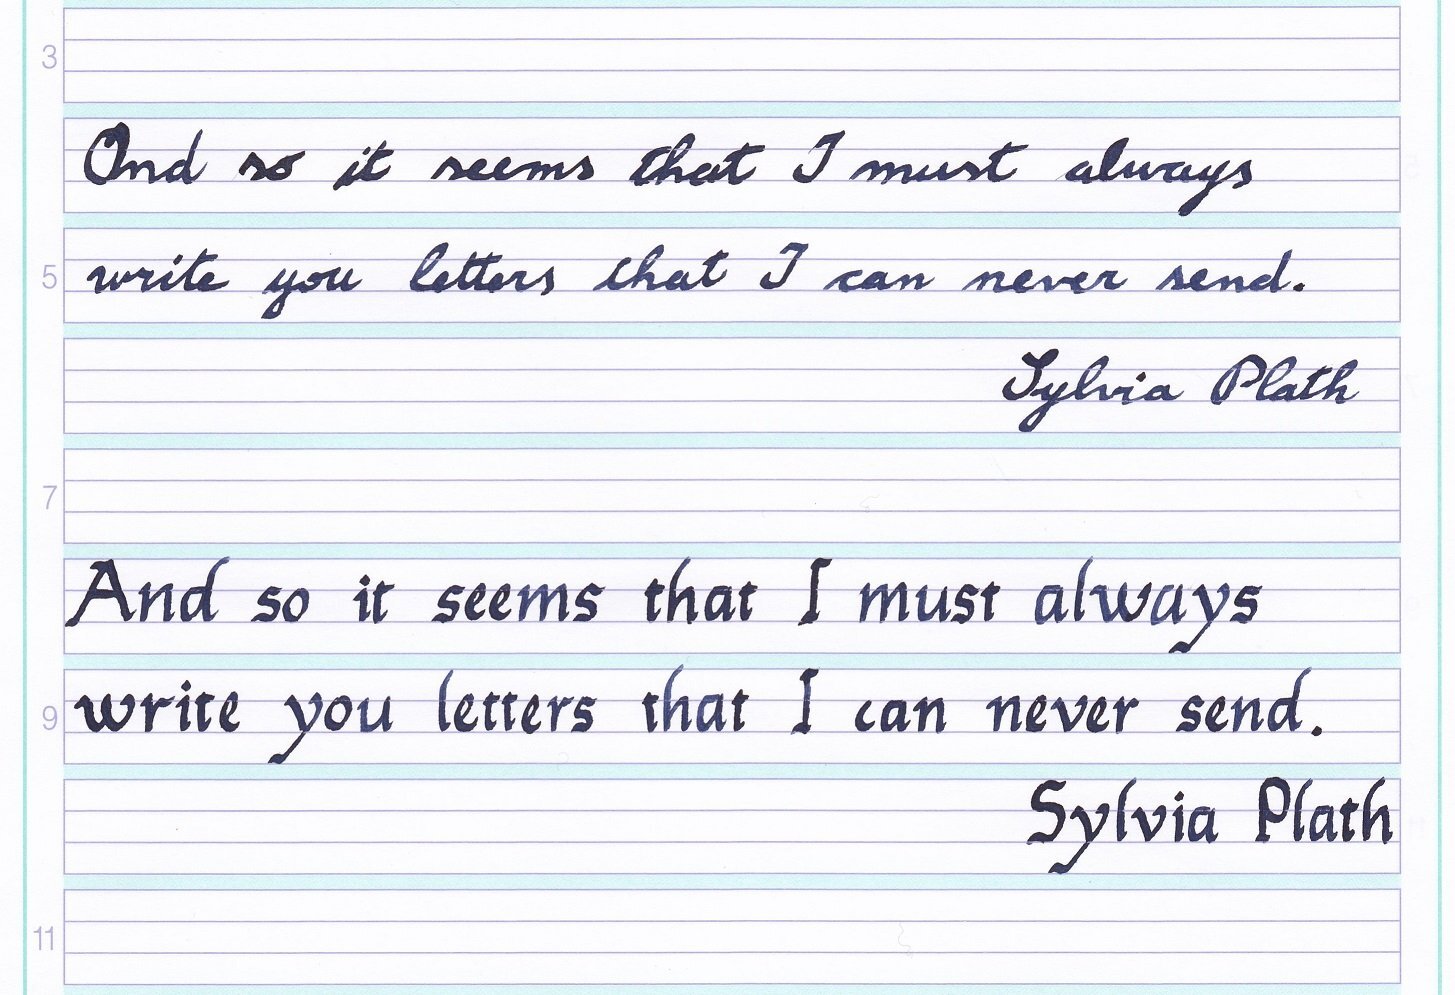 3
And so it seems that I must always
5
write you letters that I can never send.
Sylvia Plath
7
And so it seems that I must always
9
write you letters that I can never send.
Sylvia Plath
11